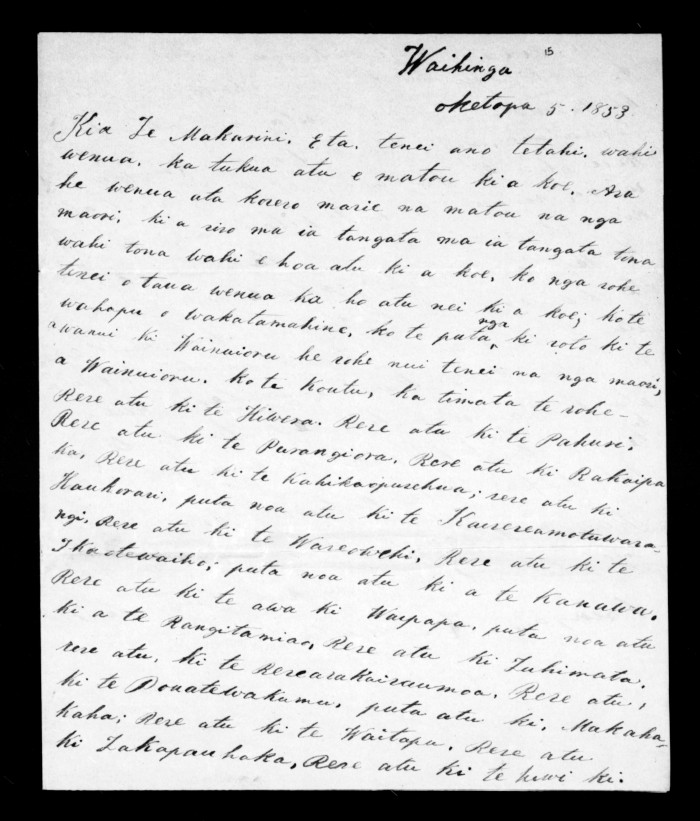 15
Waihinga
oketopa 5. 1853
Kia Te Makarini. Eta. tenei ano tetahi. wahi
wenua. ka tukua atu e matou ki a koe. Ara
he wenua ata korero marie na matou na nga
maori, ki a riro ma ia tangata ma ia tangata tona
wahi tona wahi e hoa atu ki a koe. ko nga rohe
tenei o taua wenua ka ho atu nei ki a koe; kote
wahapu o wakatamahine, ko te puta nga ki roto ki te
awanui ki Wainuioru he rohe nui tenei na nga maori,
a Wainuioru. ko te Koutu, ka timata te rohe-
Rere atu ki te Hiwera. Rere atu ki te Pahuri,
Rere atu ki te Purangiora. Rere atu ki Rakaipa
ka, Rere atu ki te Kahikaopurehua; rere atu ki
Haukorari, puta noa atu ki te Kaurereamotuwara-
ngi, Rere atu ki te Wareohehi, Rere atu ki te
Ikaotewaiho; puta noa atu ki a te Kanawa.
Rere atu ki te awa ki Waipapa, puta noa atu
ki a te Rangitamiao, Rere atu ki Tuhimata.
rere atu, ki te Rerearakairaumoa. Rere atu,
ki te Pouatewakumu, puta atu ki, Makaha-
kaha; Rere atu ki te Waitapu, Rere atu
ki Takapauhaka, Rere atu ki te hiwi ki.